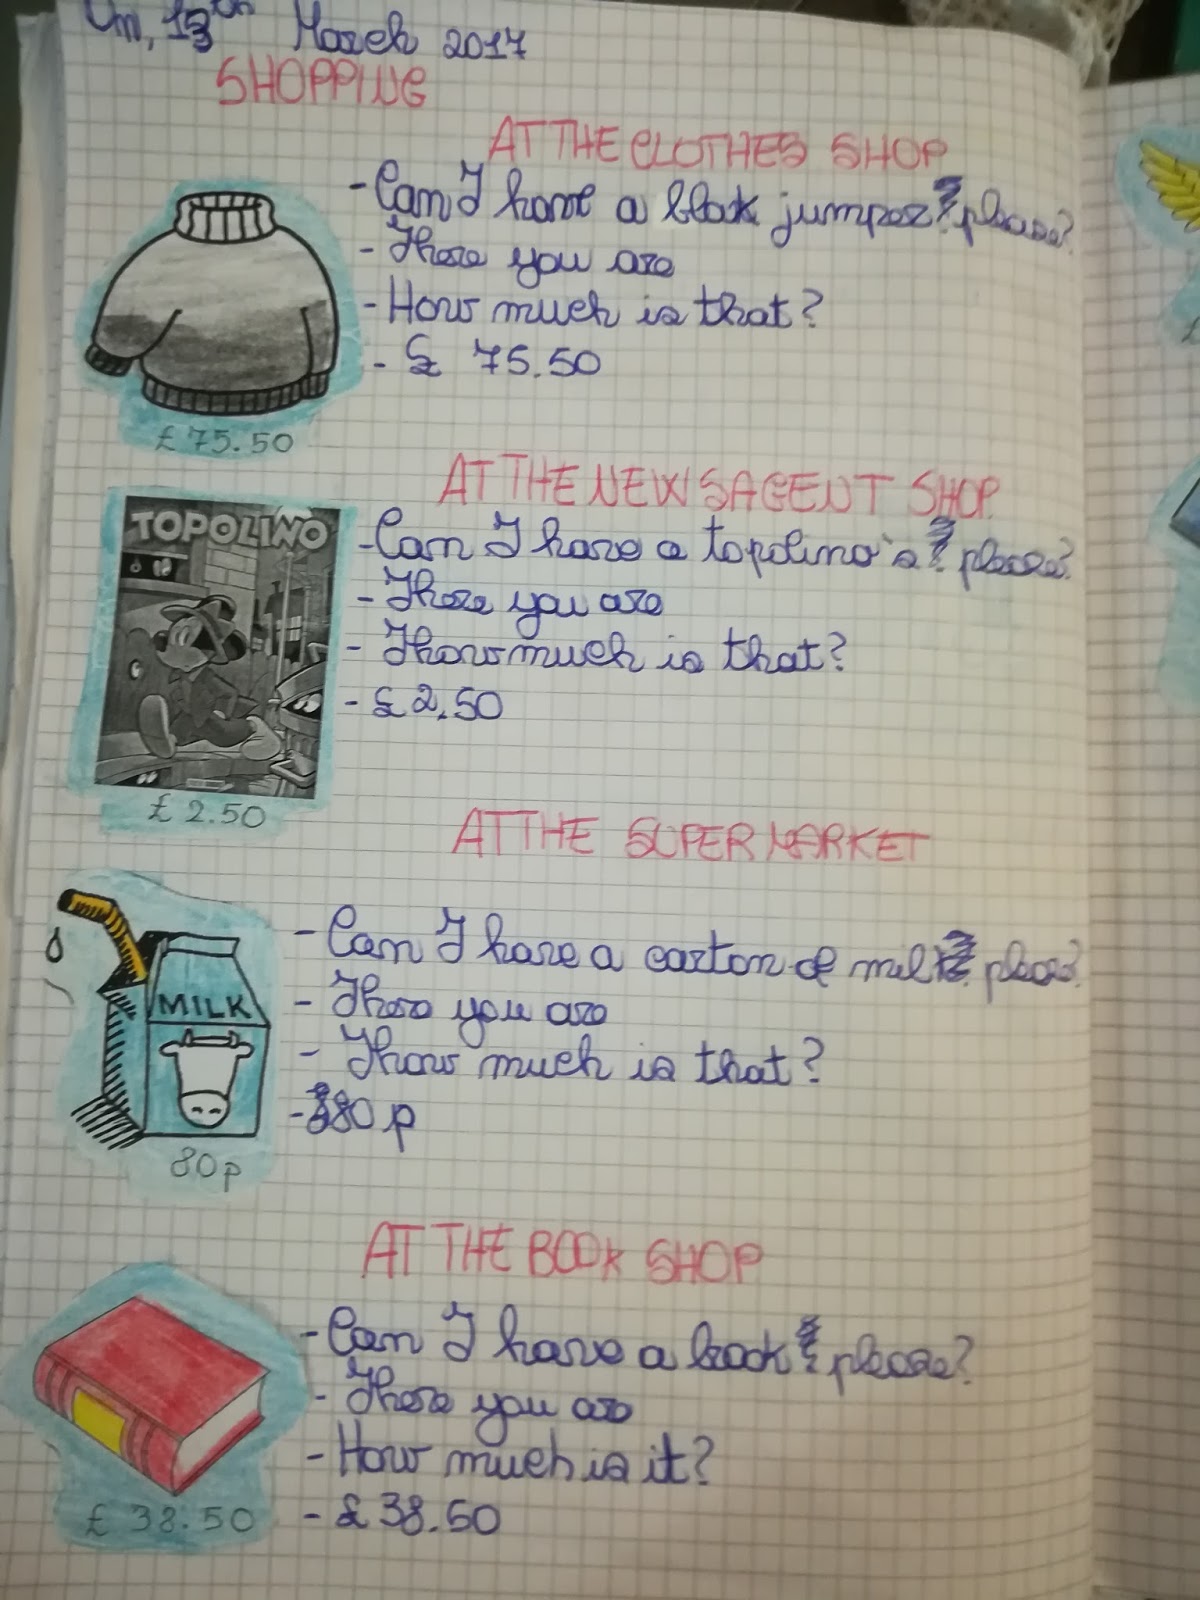 13th March 2017
SHOPPING
AT THE CLOTHES SHOP
- Can I have a blak jumper please?
- There you are
- How much is that?
- £ 75.50
£ 75.50
AT THE NEWSAGENT SHOP
TOPOLINO
- Can I have a topolino's please?
- There you are
- Thow much is that?
- £ 2.50
£ 2.50
AT THE SUPERMARKET
- Can I have a carton of milk please?
- There you are
- Thow much is that?
- 80 p
MILK
80p
AT THE BOOK SHOP
- Can I have a book please?
- There you are
- How much is it?
- £ 38.50
£ 38.50